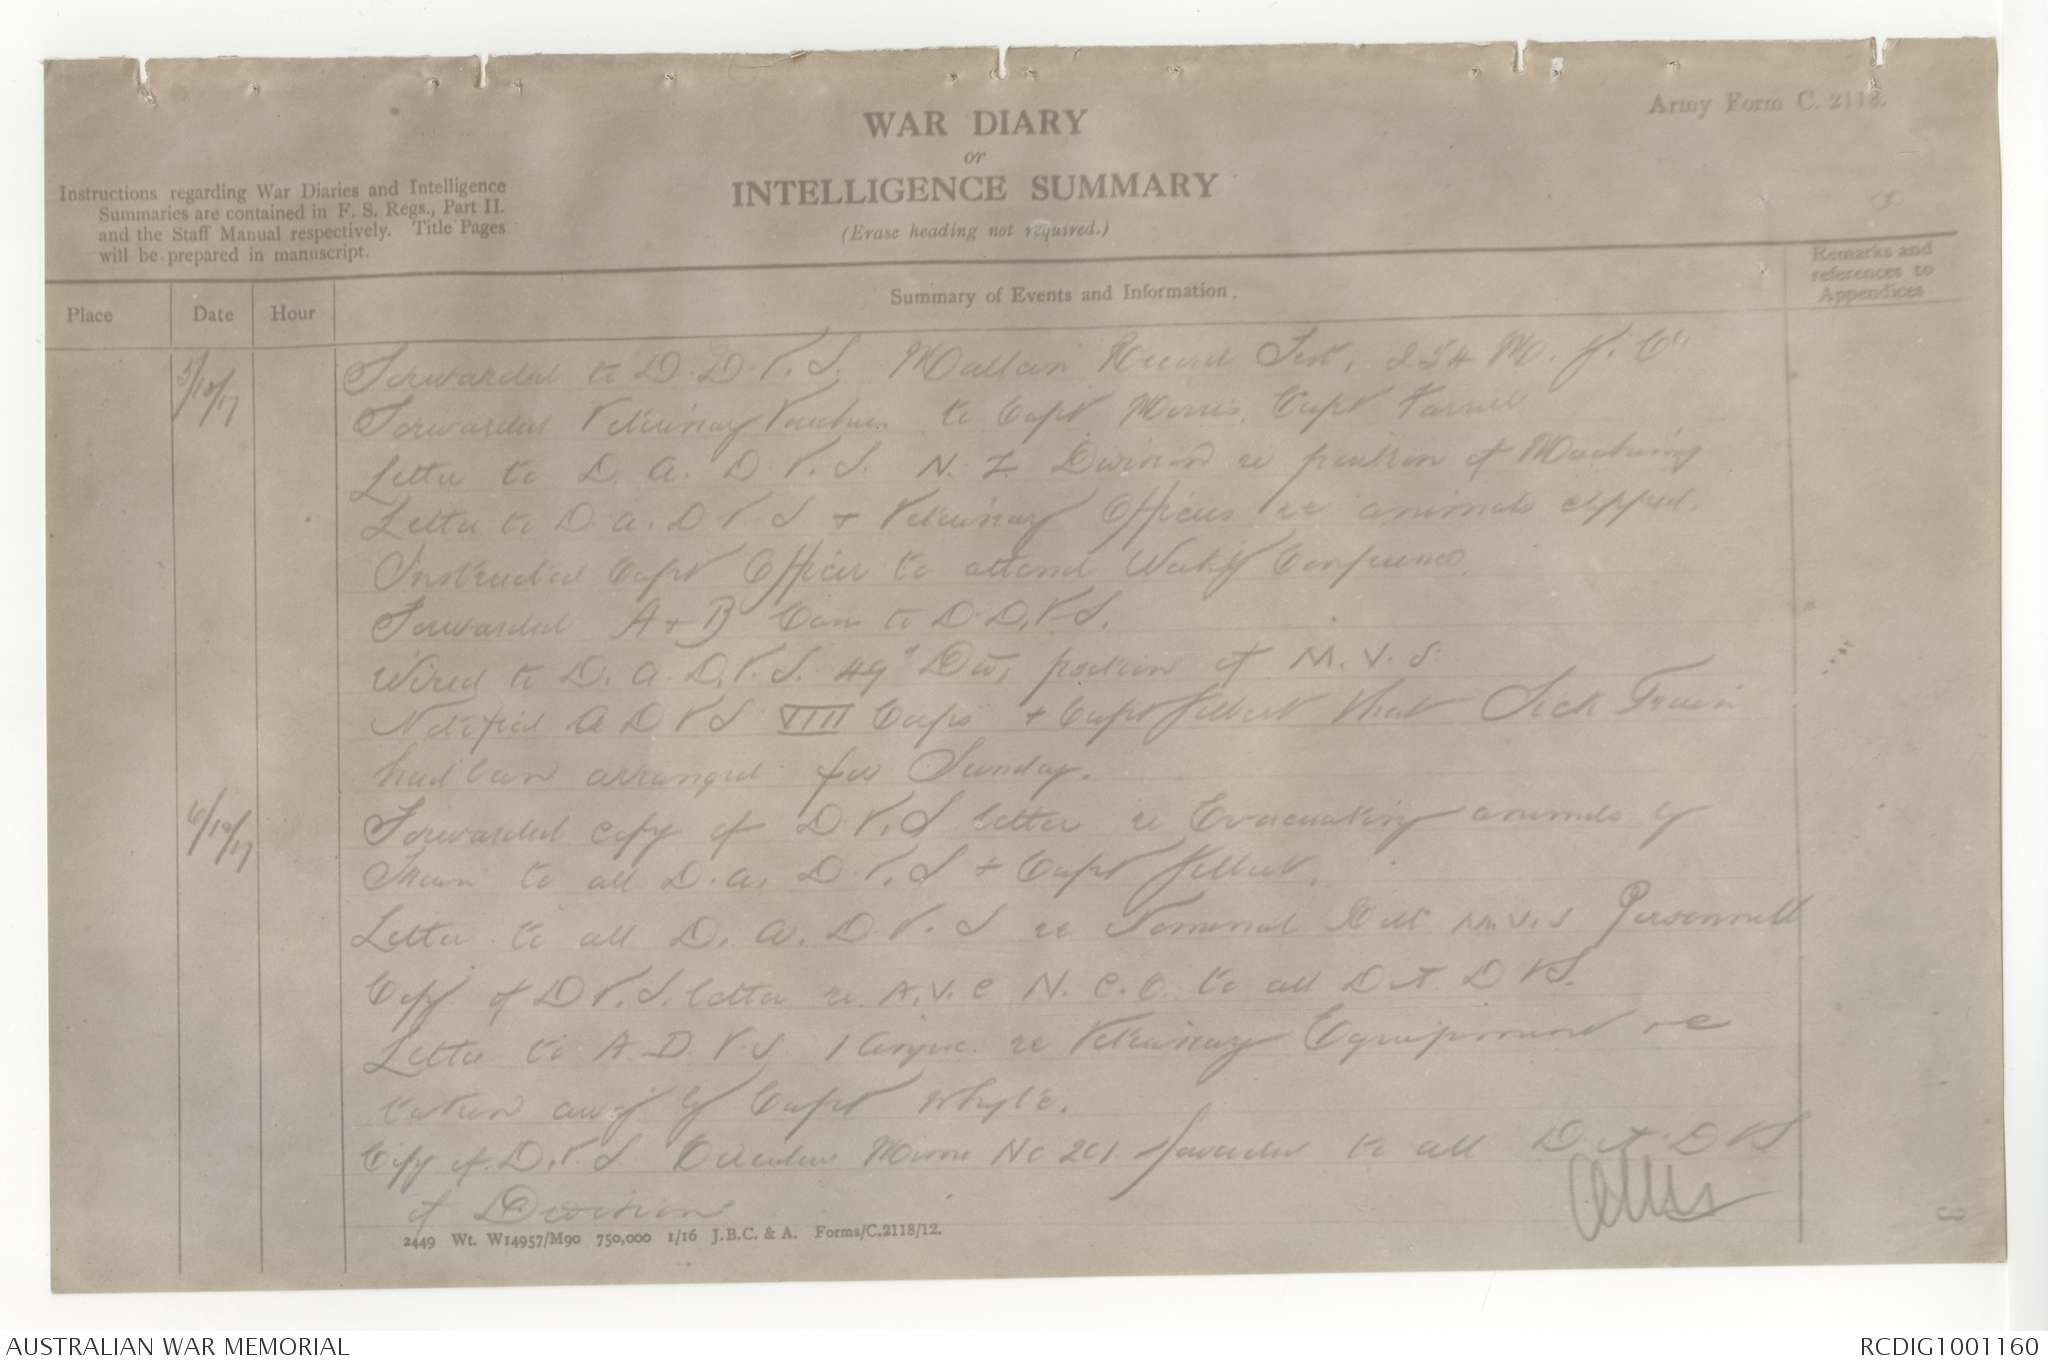 Army Form C. 2118.
WAR DIARY
or
INTELLIGENCE SUMMARY
(Erase heading not required.)
Instructions regarding War Diaries and Intelligence
Summaries are contained in F. S. Regs., Part II.
and the Staff Manual respectively. Title Pages
will be prepared in manuscript.
Place
Date
Hour
Summary of Events and Information.
Remarks and
references to
Appendices
5/10/17
Forwarded to D.D.V.S. Mallein Record Test, 254 M. G. Co
Forwarded Veterinary to Capt Morris, Capt Farrell
Letter to D. A. D. V. S. N. Z. Division re position of
Letter to D. A. D V S + Veterinary Officers re animals clipped.
Instructed Capt Officer to attend Weekly Conference.
Forwarded A + B to D.D.V.S.
Wired to D. A. D.V.S. 49" Div, position of M. V. S.
Notified A D V S VIII Corps + Capt Gilbert that Sick Train
had been arranged for Sunday.
6/10/17
Forwarded copy of D.V.S letter re Evacuating animals by
Train to all D.A. D.V.S + Capt Gilbert.
Letter to all D. A. D. V. S re Nominal Roll M.V.S Personnell
Copy of D V.S. letter re A.V.C N. C. O. to all D A. D VS.
Letter to A. D. V. S. re Veterinary Equipment re
taken away by Capt Whyte.
Copy of D.V.S. Circular Memo No 201 forwarded to all D A D VS
of Division
2449 Wt. W14957/M90 750,000 1/16 J.B.C. & A. Forms/C.2118/12.
3
AUSTRALIAN WAR MEMORIAL
RCDIG1001160